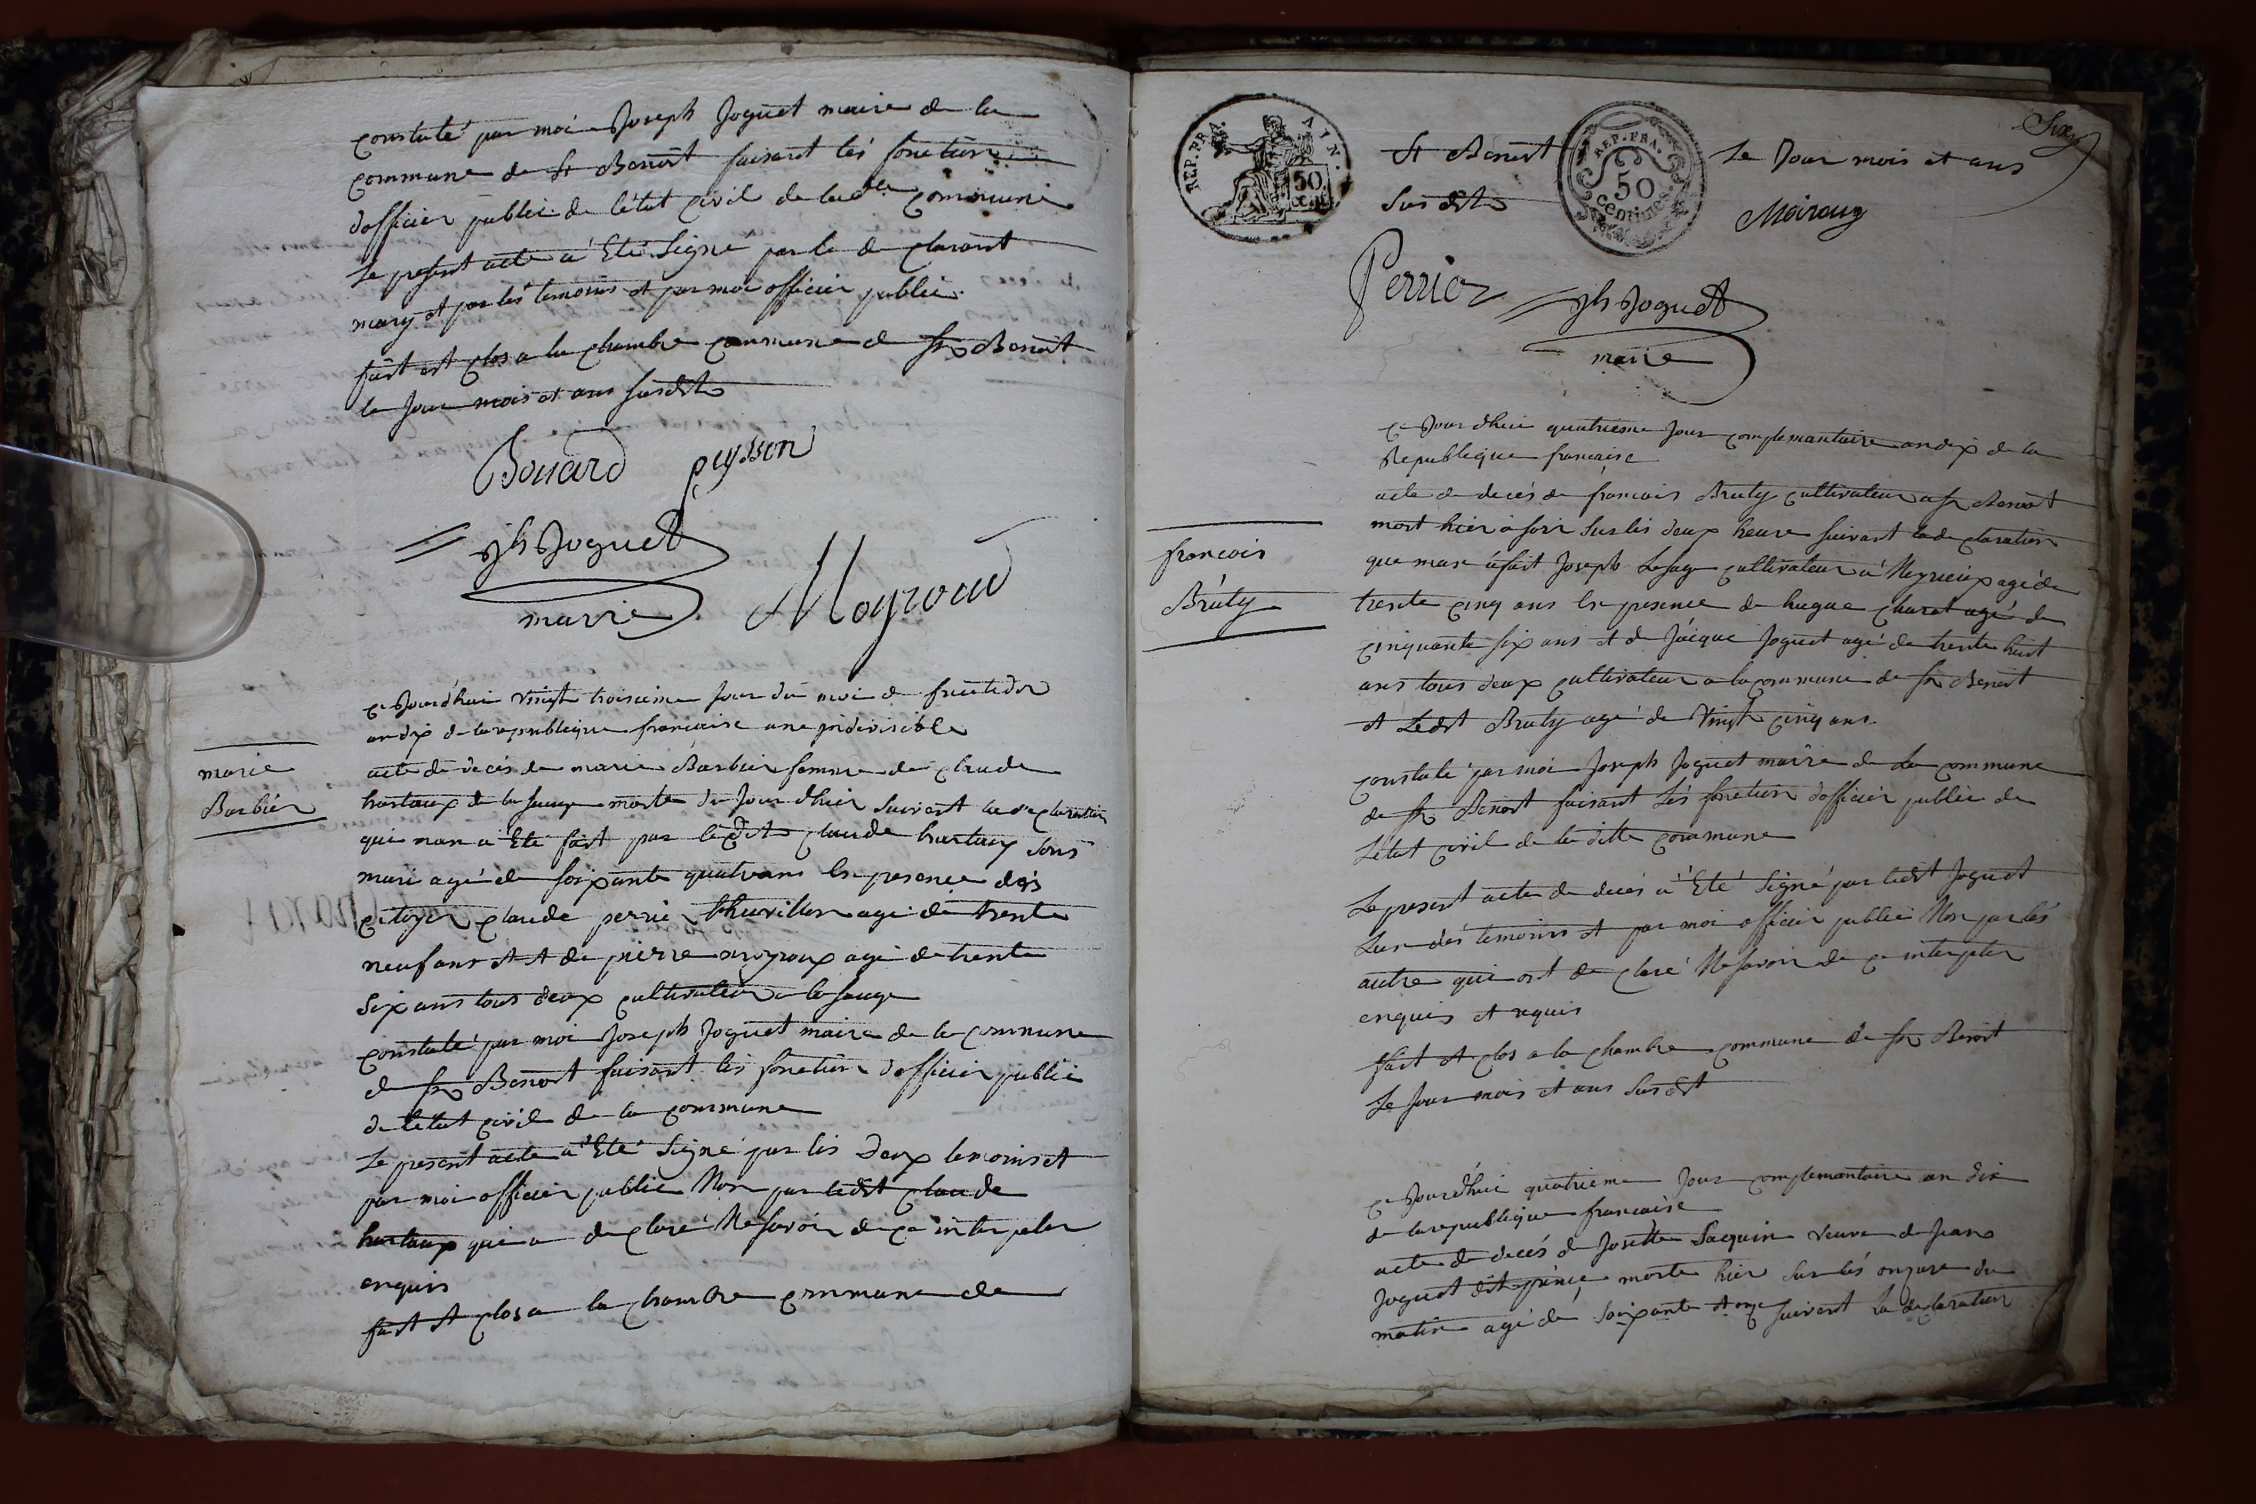 constaté par moi Joseph Joguet maire de la
commune de St Benoit faisant lés fonction
dofficier public de létat civil de ladte commune
Le present acte a Eté Signé par le de clarant
mary et par lés temoins et par moi officier public
fait et clos a la chambre commune de St Benoit
le Jour mois et ans susdit
Bouard peysson
Jh Joguet
maire Moyroud
ce Jourdhui vingt troisieme Jour du moi de fructidor
an dix de la republique francaise une jndivisible
marie
Barbier
acte de decés de marie Barbier femme de claude
hurtaux de la sauge morte du Jour dhier suivant la de claration
qui nan a Eté fait par ledit claude hurtaux sons
mari agé de soixante quatre ans En presence dés
citoyen claude perrier thuvillon agé de trente
neuf ans et de pierre moyroux agé de trente
six ans tous deux cultivateur a la sauge
constaté par moi Joseph Joguet maire de la commune
de St Benoit faisant lés fonction dofficier public
de létat civil de la commune
Le present acte a Eté Signé par lés deux temoins et
par moi officier public Non par ledit claude
hurtaux qui a de claré Ne savoir de ce interpeler
enquis
fait et clos a la chambre commune de
REP. FRA. AIN.
50
REP. FRA.
50
centimes
Six
St Benoit Le Jour mois et ans
Susdit
Moiroux
Perrier
Jh Joguet
maire
ce Jour dhui quatrieme Jour complemantaire an dix de la
Republique francaise
francois
Bruty
acte de decés de francois Bruty cultivateur a St Benoit
mort hier a soir sur lés deux heure suivant la de claration
que man a fait Joseph Lesage cultivateur a Meyrieux agé de
trente cinq ans En presence de hugue charat agé de
cinquante six ans et de Jacque Joguet agé de trente huit
ans tous deux cultivateur a la commune de St Benoit
et Ledit Bruty agé de vingt cinq ans
constaté par moi Joseph Joguet maire de La commune
de St Benoit faisant Lés fonction dofficier public de
Létat civil de la ditte commune
Le present acte de decés a Eté Signé par ledit Joguet
Lun dés temoins et par moi officier public Non par lés
autre qui ont de claré Ne savoir de ce interpeler
enquis et requis
fait et clos a la chambre commune de St Benoit
Le Jour mois et ans susdit
ce Jourdhui quatrieme Jour complemantaire an dix
de la republique francaise
acte de decés de Josette Sacquin veuve de Jean
Joguet dit prince morte hier sur lés onzure du
matin agé de soixante et onze suivant la declaration